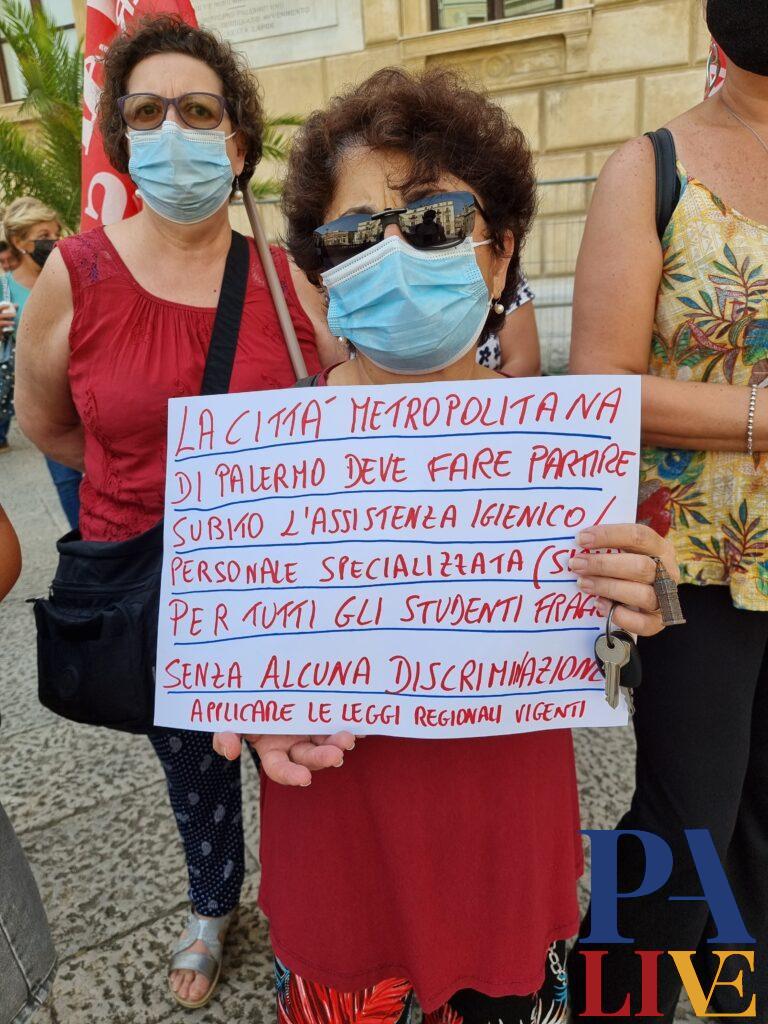 LA CITTÀ METROPOLITANA
DI PALERMO DEVE FARE PARTIRE
SUBITO L'ASSISTENZA IGIENICO/
PERSONALE SPECIALIZZATA
PER TUTTI GLI STUDENTI
SENZA ALCUNA DISCRIMINAZIONE
APPLICARE LE LEGGI REGIONALI VIGENTI
PA
LIVE